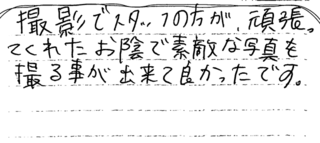 撮影でスタッフの方が、頑張っ
てくれたお陰で素敵な写真を
撮る事が出来て良かったです。